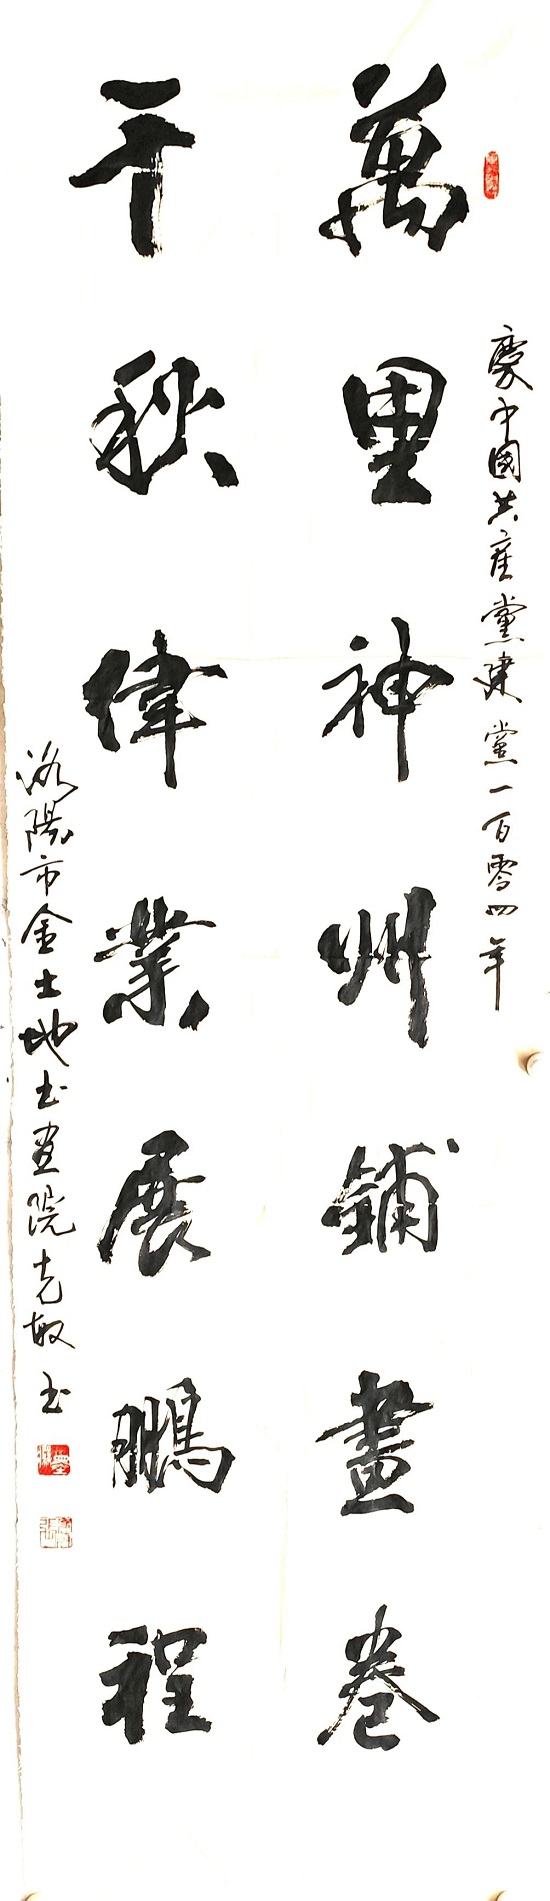 慶中國共産黨建黨一百零四年
萬里神州鋪畫卷
千秋偉業展鵬程
洛陽市金土地书畫院克敏书